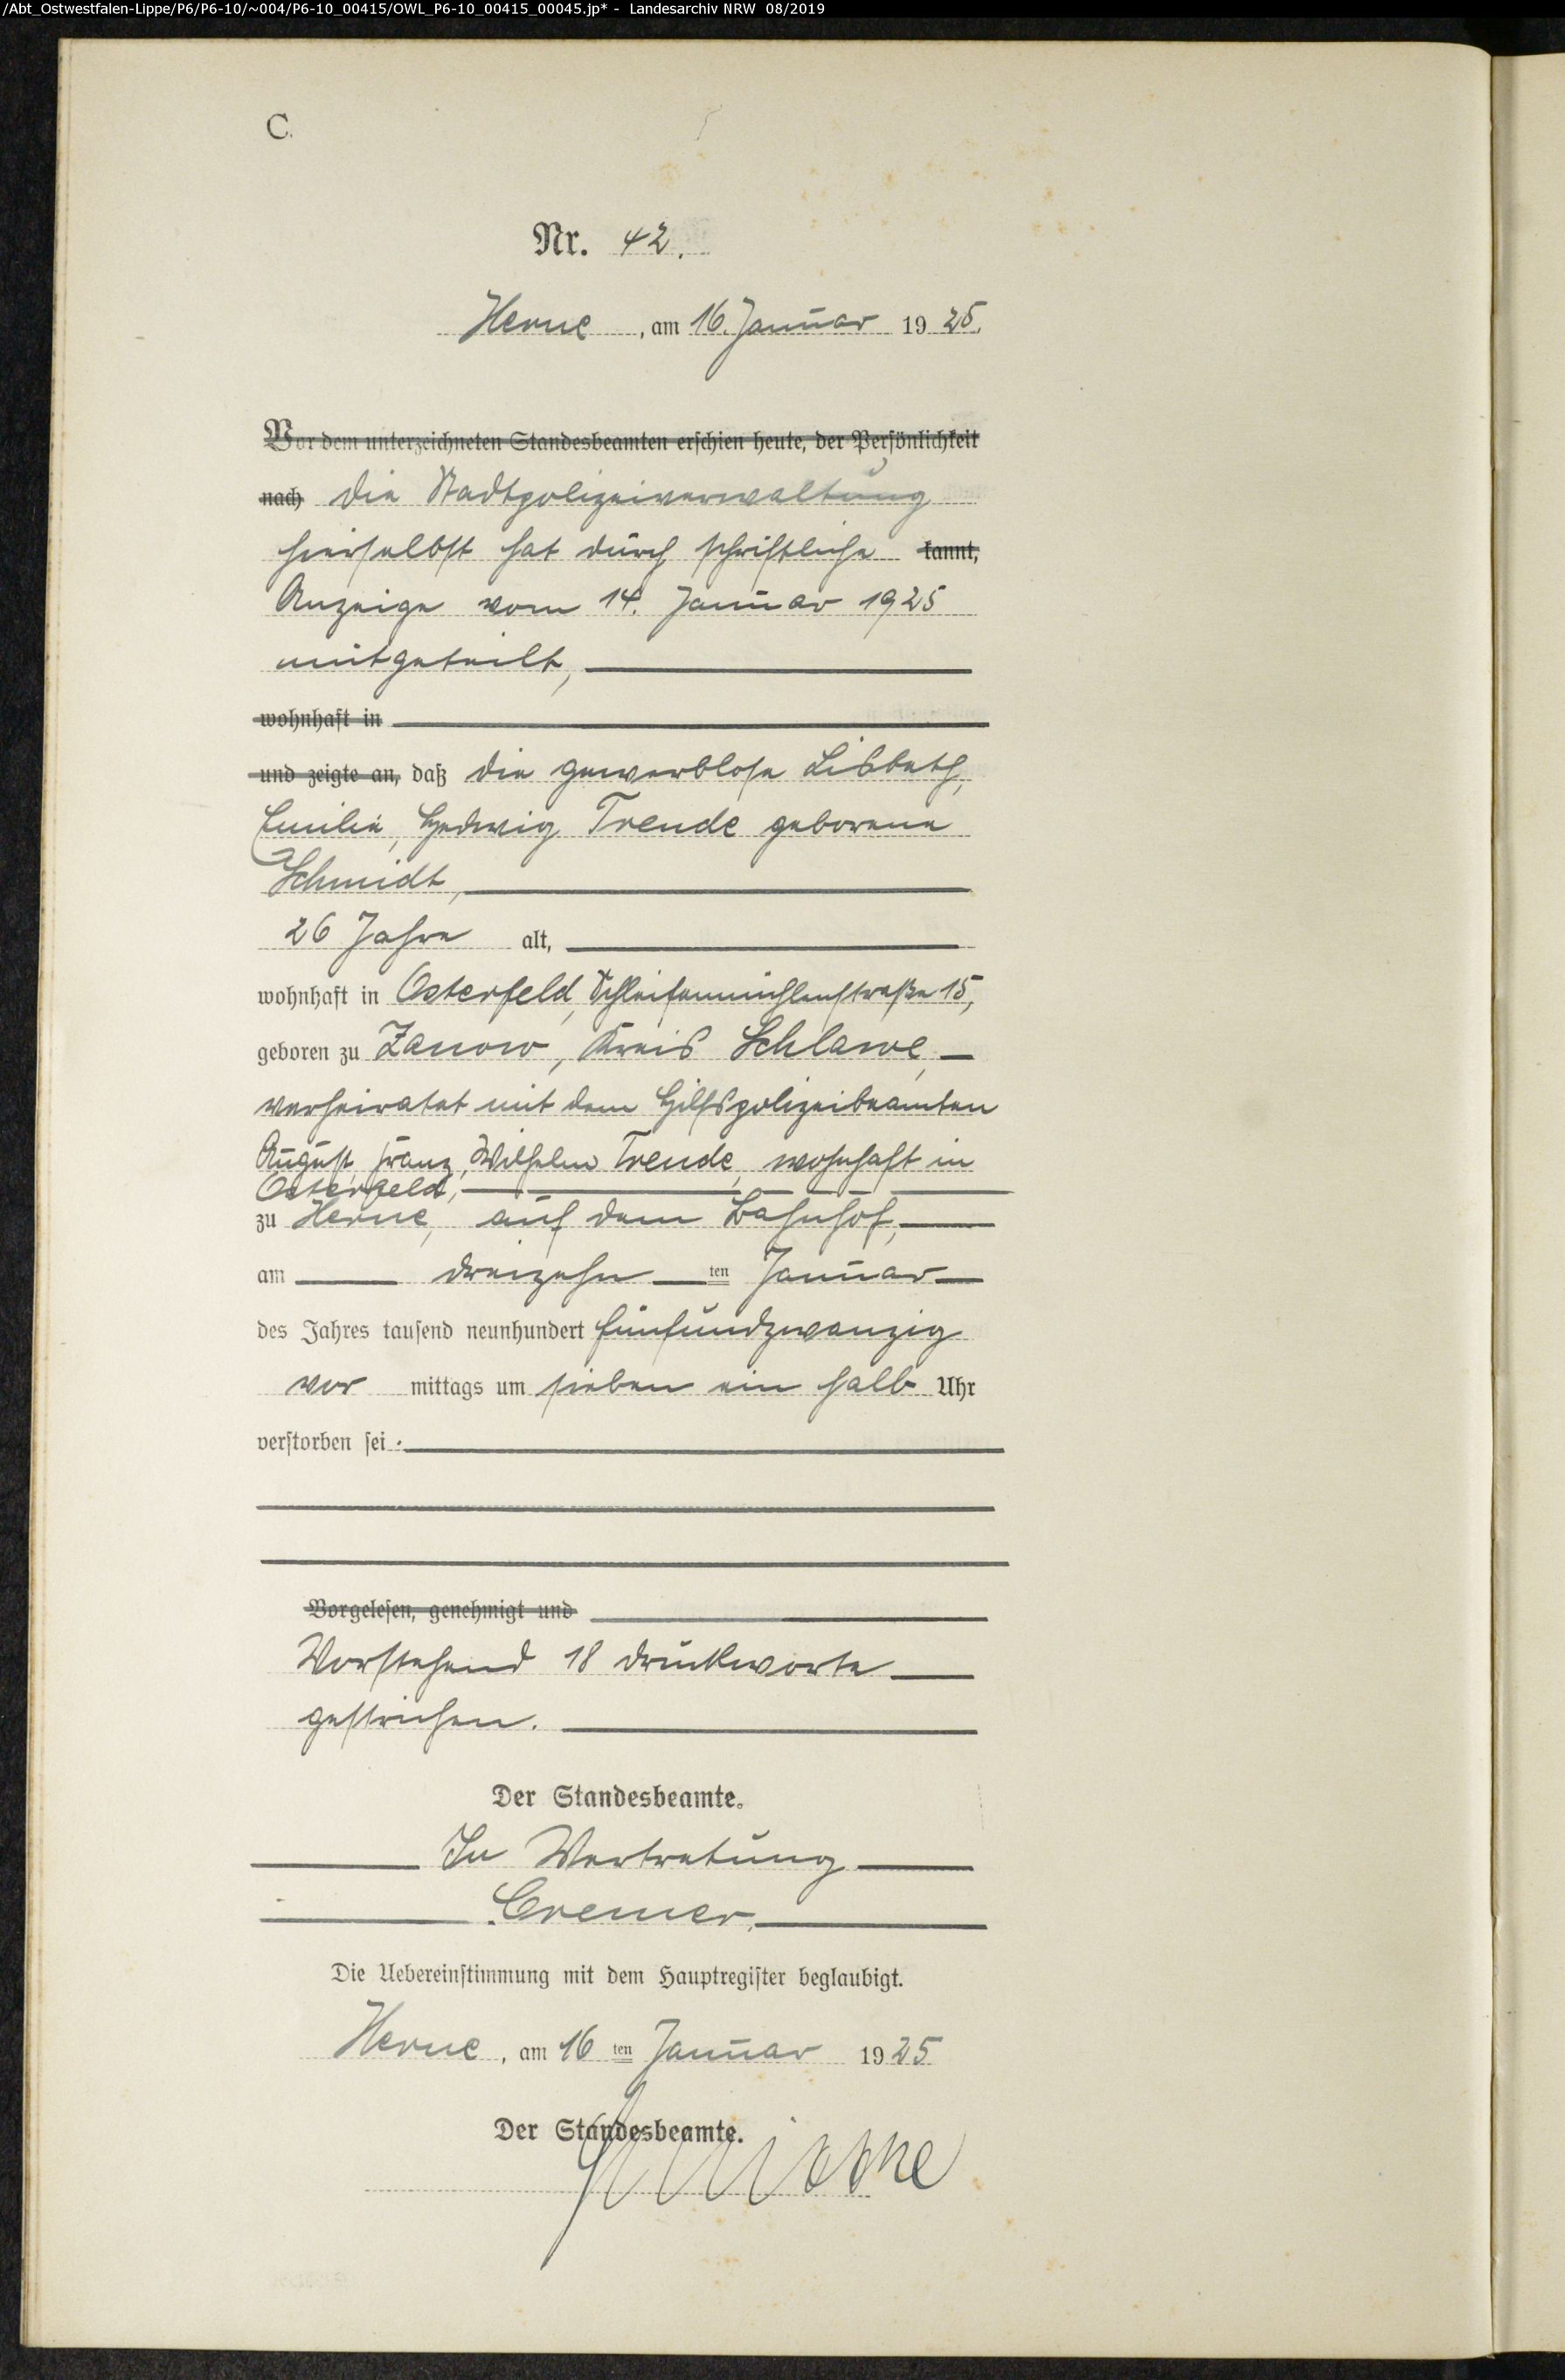 /Abt_Ostwestfalen-Lippe/P6/P6-10/~004/P6-10_00415/OWL_P6-10_00415_00045.jp* - Landesarchiv NRW 08/2019
C.
Nr. 42.
Herne, am 16. Januar 1925.
Vor dem unterzeichneten Standesbeamten erschien heute, der Persönlichkeit
nach die Stadtpolizeiverwaltung
hierselbst hat durch schriftliche kannt,
Anzeige vom 14. Januar 1925
mitgeteilt,
wohnhaft in
und zeigte an, daß die gewerblose Lisbeth,
Emilie, Hedwig Trende geborene
Schmidt,
26 Jahre alt,
wohnhaft in Osterfeld, Schleifenmühlenstraße 15,
geboren zu Zanow, Kreis Schlawe,
verheiratet mit dem Hilfspolizeibeamten
August, Franz, Wilhelm Trende, wohnhaft in
Osterfeld,
zu Herne, auf dem Bahnhof,
am dreizehn ten Januar
des Jahres tausend neunhundert fünfundzwanzig
vor mittags um sieben ein halb Uhr
verstorben sei.
Vorgelesen, genehmigt und
Vorstehend 18 Druckworte
gestrichen.
Der Standesbeamte.
In Vertretung
Cremer.
Die Uebereinstimmung mit dem Hauptregister beglaubigt.
Herne, am 16 ten Januar 1925
Der Standesbeamte.